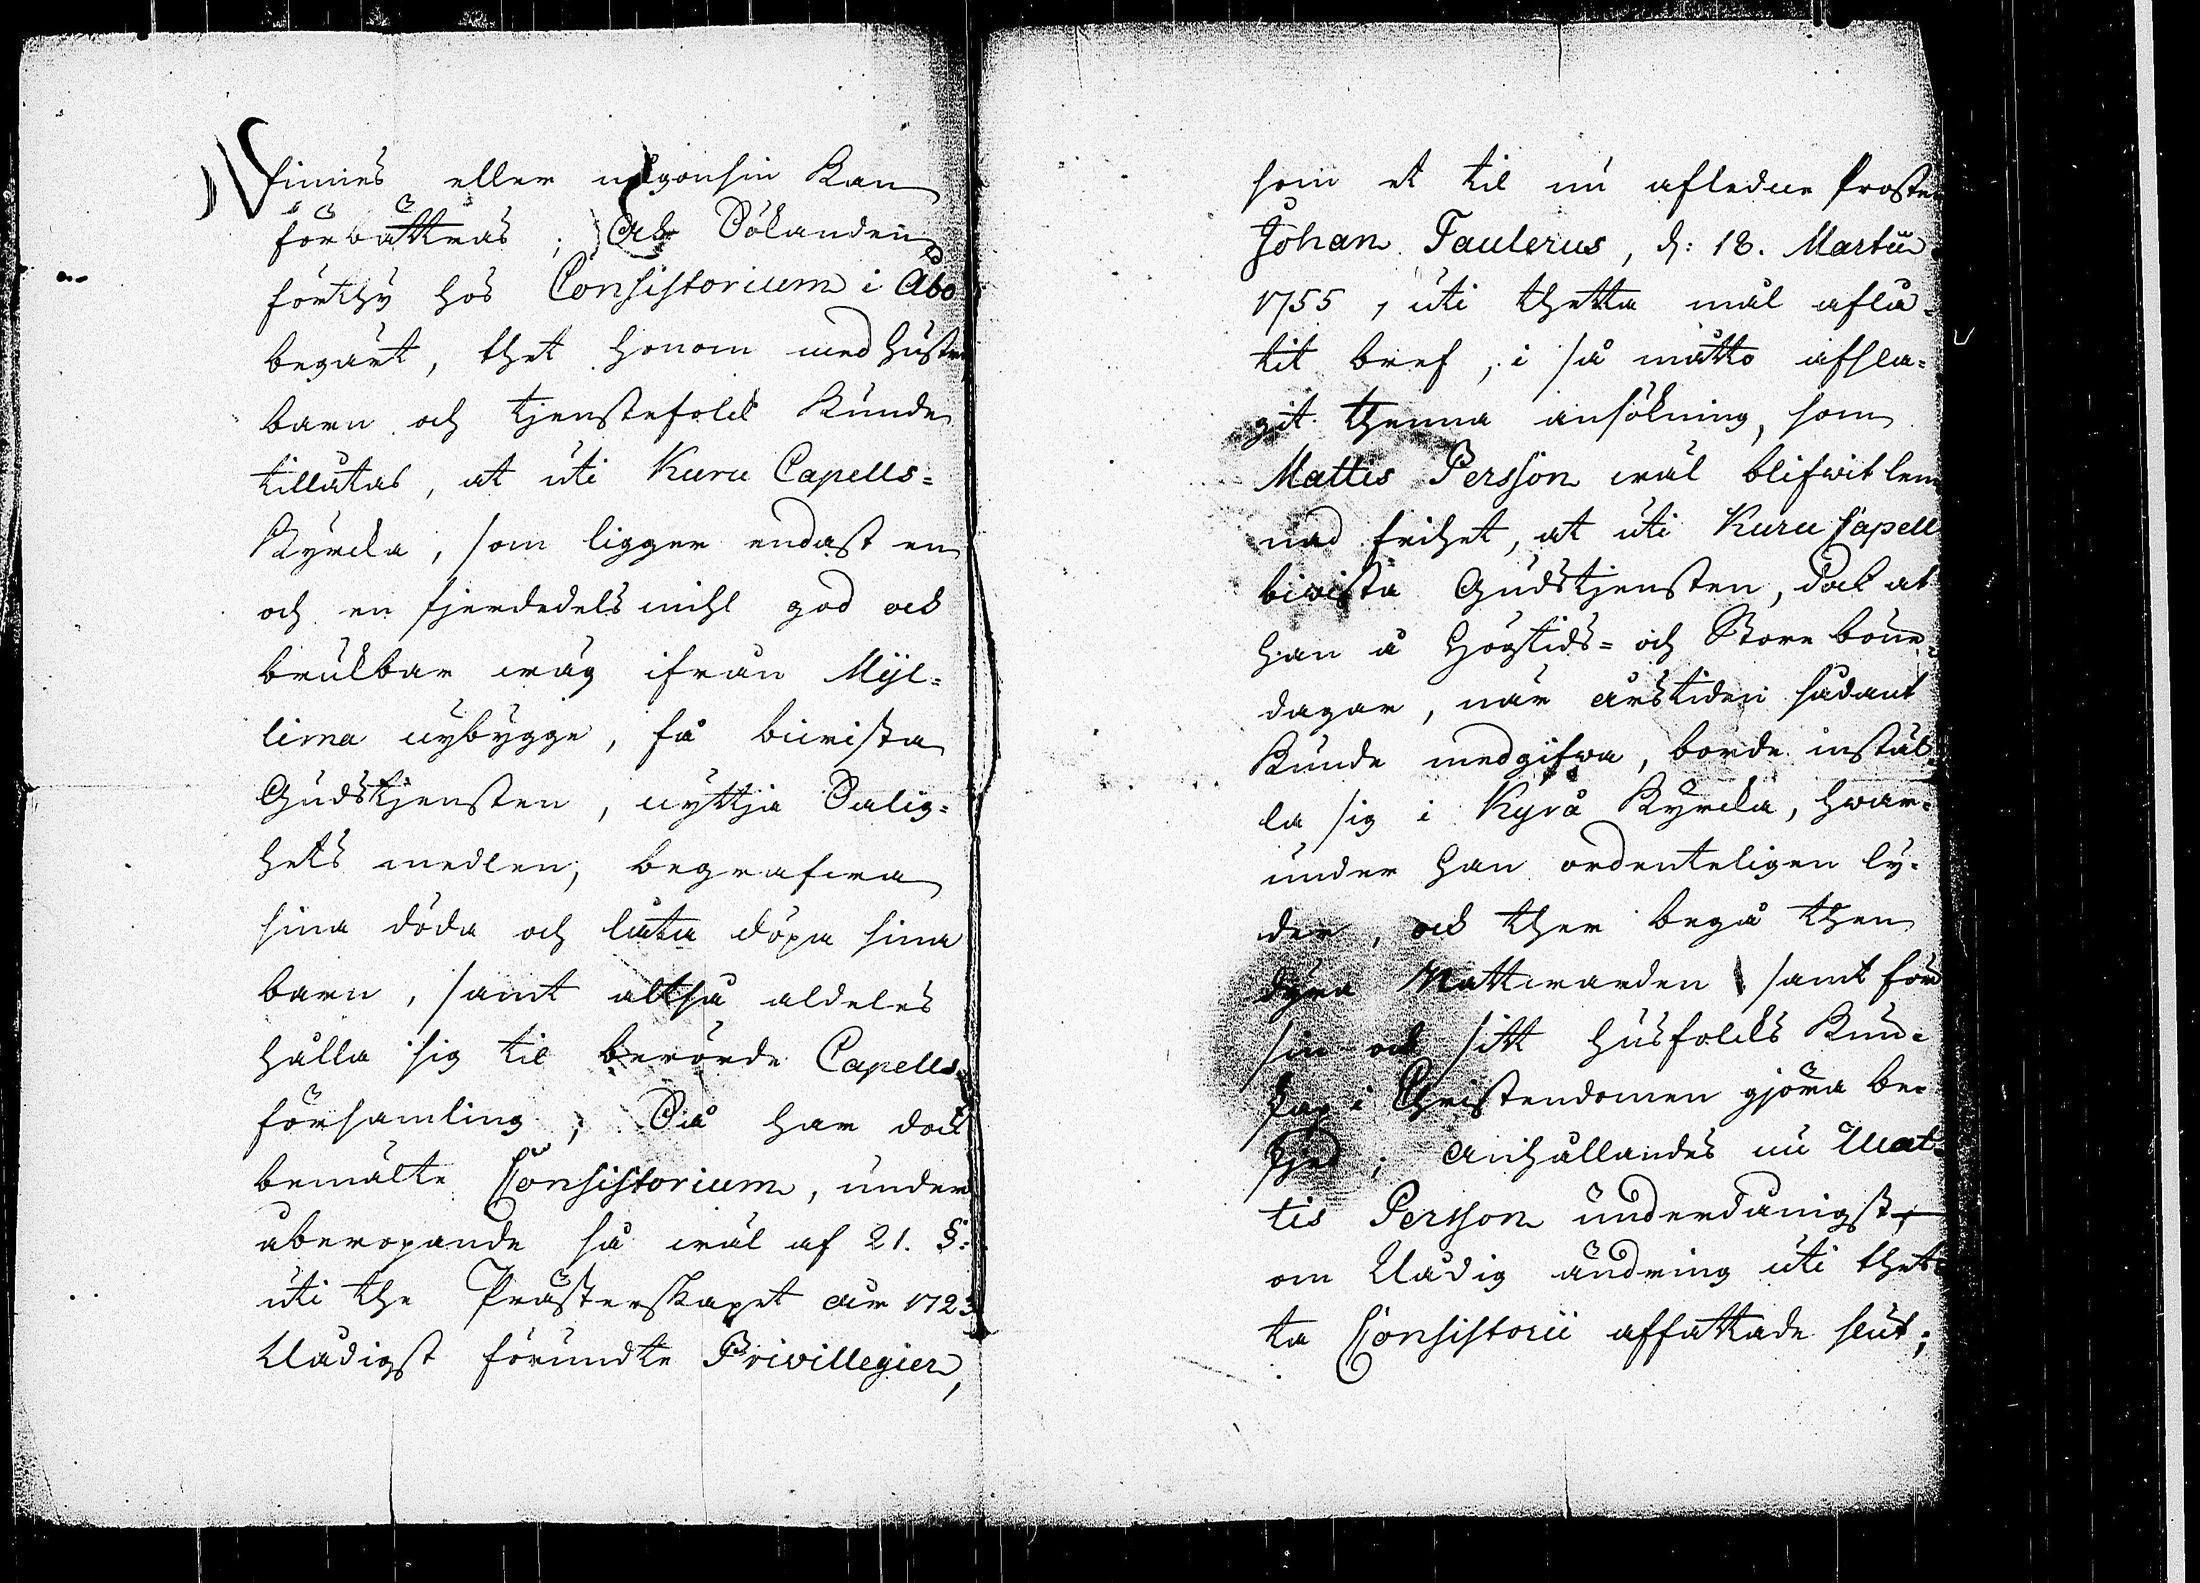 finnes eller någonsin kan
förbättras; Ock Sökanden
förthy hos Consistorium i Åbo
begärt, thet honom med hustru
barn och tjenstefolck kunde
tillåtas, at uti Kuru Capells=
Kyrcka, som ligger endast en
och en fjerdedels mihl god ock
brukbar wäg ifrån Myl=
lima nybygge, få biwista
Gudstjensten, nyttja Salig=
hets medlen, begrafwa
sina döda och låta döpa sina
barn, samt altså aldeles
hålla sig til berörde Capells
församling; Så har dock
bemälte Consistorium, under
åberopande så wäl af 21. §:
uti the Prästerskapet åur 1723
Nådigst förundte Privillegier,
som et til nu aflednne Prosten
Johan Faulerus, d: 18. Martii
1755, uti thetta mål aflå=
tit bref, i så måtto afsla=
git thenna ansökning, som
Mattis Persson wäl blifwit lem
nad frihet, at uti Kuru Capell
biwista Gudstjensten, dock at
han å Högtids= och Store böne=
dagar, när årstiden sådant
kunde medgifwa, borde instäl=
la sig i Kyrå Kyrcka, hwar=
under han ordenteligen ly=
der, ock ther begå then
dyra Nattwarden samt för
sin ock sitt husfolcks kund=
skap i Christendomen gjöra be=
sked; Anhållandes nu Mat=
tis Persson underdånigst,
om Nådig ändring uti thet=
ta Consistorii affattade slut;